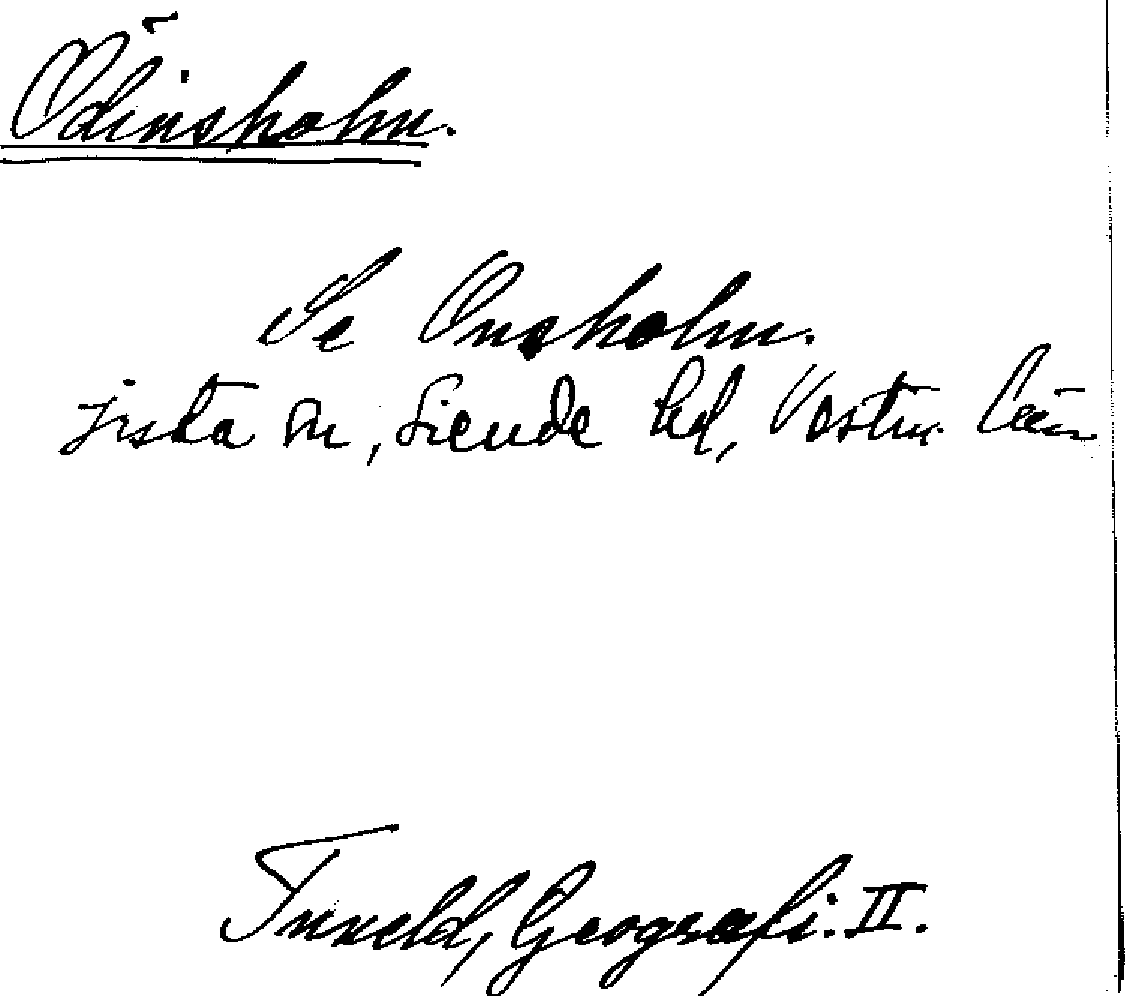 Odinsholm.
Se Onsholm.
Irsta sn, Siende hd, Västm. län
Tuneld, Geografi. II.